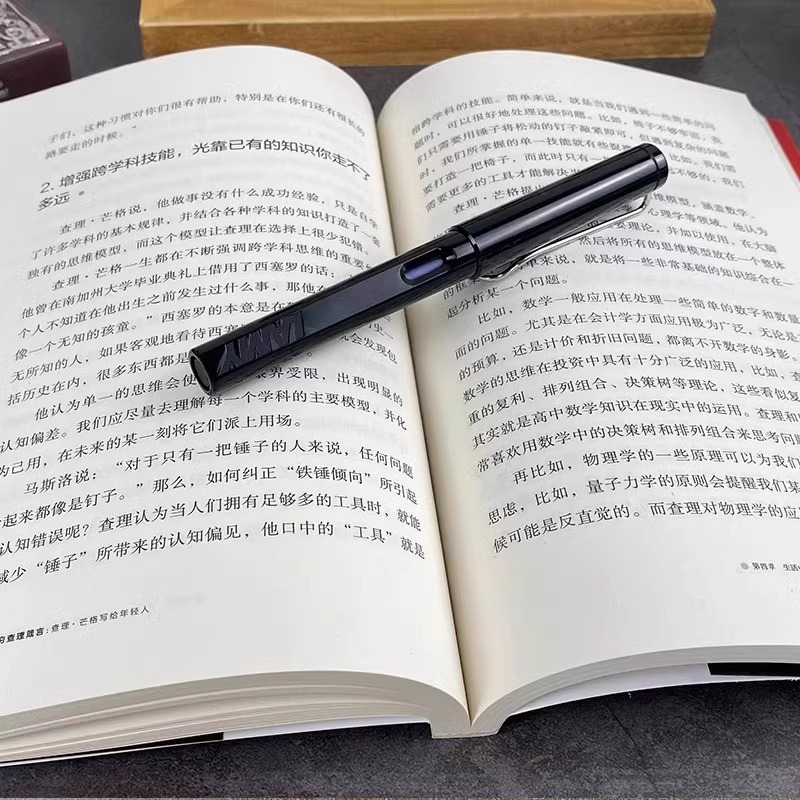 子们，这种习惯对你们很有帮助，特别是在你们还有很长的
路要走的时候。”
2. 增强跨学科技能，光靠已有的知识你走不了
多远
查理·芒格说，他做事没有什么成功经验，只是自学
了许多学科的基本规律，并结合各种学科的知识打造了一套
独有的思维模型，而这个模型让查理在选择上很少犯错。
查理·芒格一生都在不断强调跨学科思维的重要
他曾在南加州大学毕业典礼上借用了西塞罗的话：
个人不知道在他出生之前发生过什么事，那他在
像一个无知的孩童。”西塞罗的本意是在
无所知的人，如果客观地看待西塞 就会发现包
括历史在内，很多东西都是
他认为单一的思维会使 眼界受限，出现明显的
认知偏差。我们应尽量去理解每一个学科的主要模型，并化
为己用，在未来的某一刻将它们派上用场。
马斯洛说：“对于只有一把锤子的人来说，任何问题
起来都像是钉子。”那么，如何纠正“铁锤倾向”所引起
认知错误呢？查理认为当人们拥有足够多的工具时，就能
减少“锤子”所带来的认知偏见，他口中的“工具”就是
的查理箴言：查理·芒格写给年轻人
LAMY
指跨学科的技能。简单来说，就是当我们遇到一些简单的问
题时，可以很好地处理这些问题。比如，椅子不够牢固，我
们只需要用锤子将松动的钉子敲紧即可，但遇到复杂的问
时，我们所掌握的单一技能就有些捉 比如，我们需
要打造一把椅子，而此时只有一 不够的，我们
需要更多的工具才能解决
查理·芒格提出 思维模型，涵盖数学、
心理学等领域。他认为
重要理论，并加以使用，在大脑
然后将所有的思维模型放在一个整体
的框 单来说，就是将一些非常基础的知识综合在一
起分析某一个问题。
比如，数学一般应用在处理一些简单的数字和数量
面的问题。尤其是在会计学方面应用极为广泛，无论是
的预算，还是计价和折旧问题，都离不开数学的身影。
数学的思维在投资中具有十分广泛的应用，比如，查
重的复利、排列组合、决策树等理论，这些看似复
其实就是高中数学知识在现实中的运用。查理和
常喜欢用数学中的决策树和排列组合来思考问题
再比如，物理学的一些原理可以为我们
思虑，比如，量子力学的原则会提醒我们某
候可能是反直觉的。而查理对物理学的应
第四章 生活